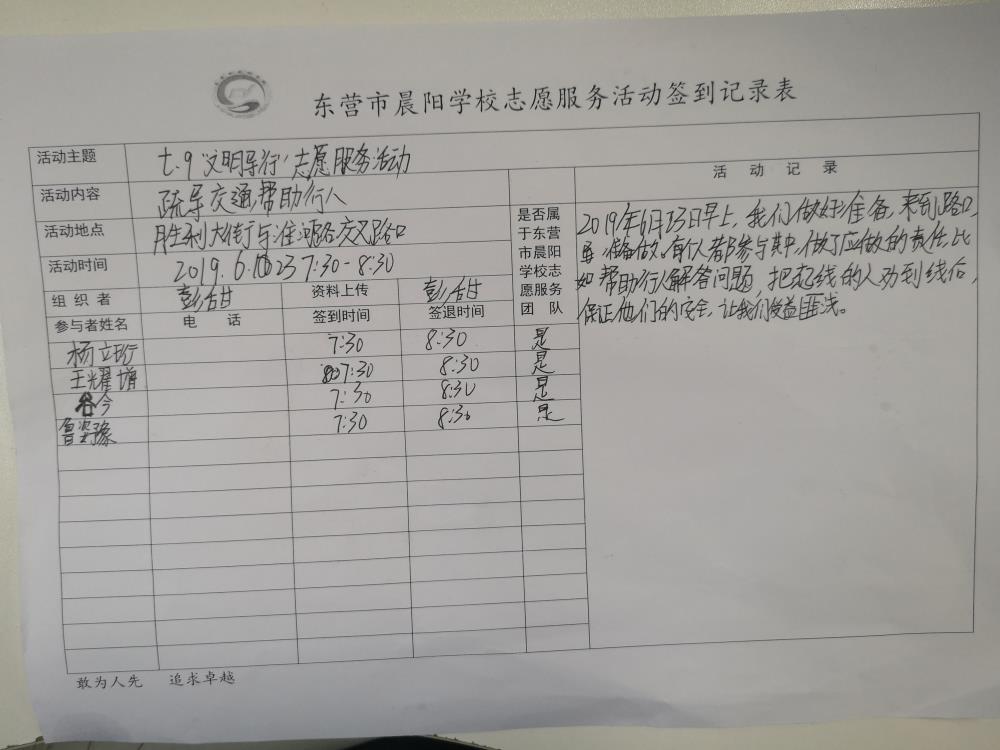 东营市晨阳学校志愿服务活动签到记录表
活动主题 七.9文明导行志愿服务活动
活动内容 疏导交通,帮助行人
活动地点 胜利大街与淮河路交叉路口
活动时间 2019.6.23 7:30-8:30
组织者 彭恬甘 资料上传 彭恬甘
参与者姓名 电话 签到时间 签退时间
是否属
于东营
市晨阳
学校志
愿服务
团队
杨立珩 7:30 8:30 是
王耀增 7:30 8:30 是
今 7:30 8:30 是
鲁姿豫 7:30 8:30 是
活动记录
2019年6月23日早上,我们做好准备,来到路口,
准备做。每个人都参与其中,做了应做的责任,比
如帮助行人解答问题,把越线的人劝到线后,
保证他们的安全,让我们受益匪浅。
敢为人先 追求卓越